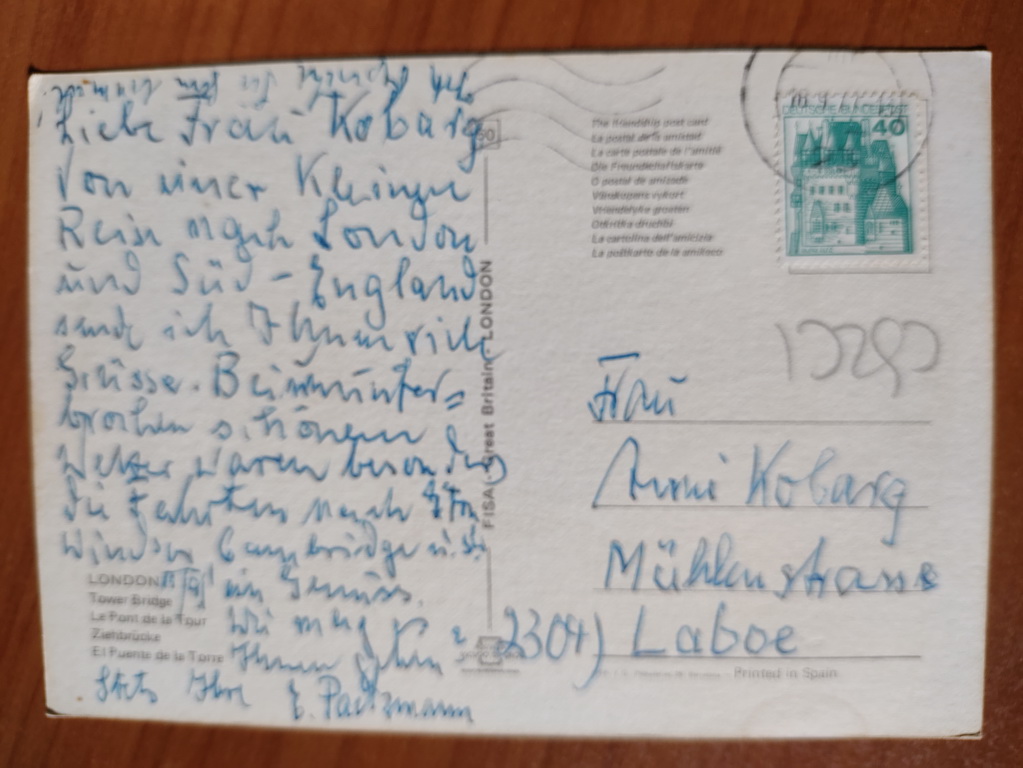 Liebe Frau Kobarg
Von einer kleinen
Reise nach London
und Süd-England
sende ich Ihnen viele
Grüsse. Bei ununter=
brochen schönem
Wetter waren besonders
die Fahrten nach Eton
Windsor Cambridge u.s.
ein Genuss.
Wie mag es
Ihnen gehen
Stets Ihre E. Paetzmann
LONDON
Tower Bridge
Le Pont de la Tour
Ziehbrücke
El Puente de la Torre
FISA - Great Britain - LONDON
The friendship post card
La postal de la amistad
La carte postale de l'amitié
Die Freundschaftskarte
O postal de amizade
Vänskapens vykort
Vriendelyke groeten
Otkritka druchbi
La cartolina dell'amicizia
La poŝtkarto de la amikeco
DEUTSCHE BUNDESPOST
40
Frau
Anni Kobarg
Mühlenstrasse
2304) Laboe
Printed in Spain